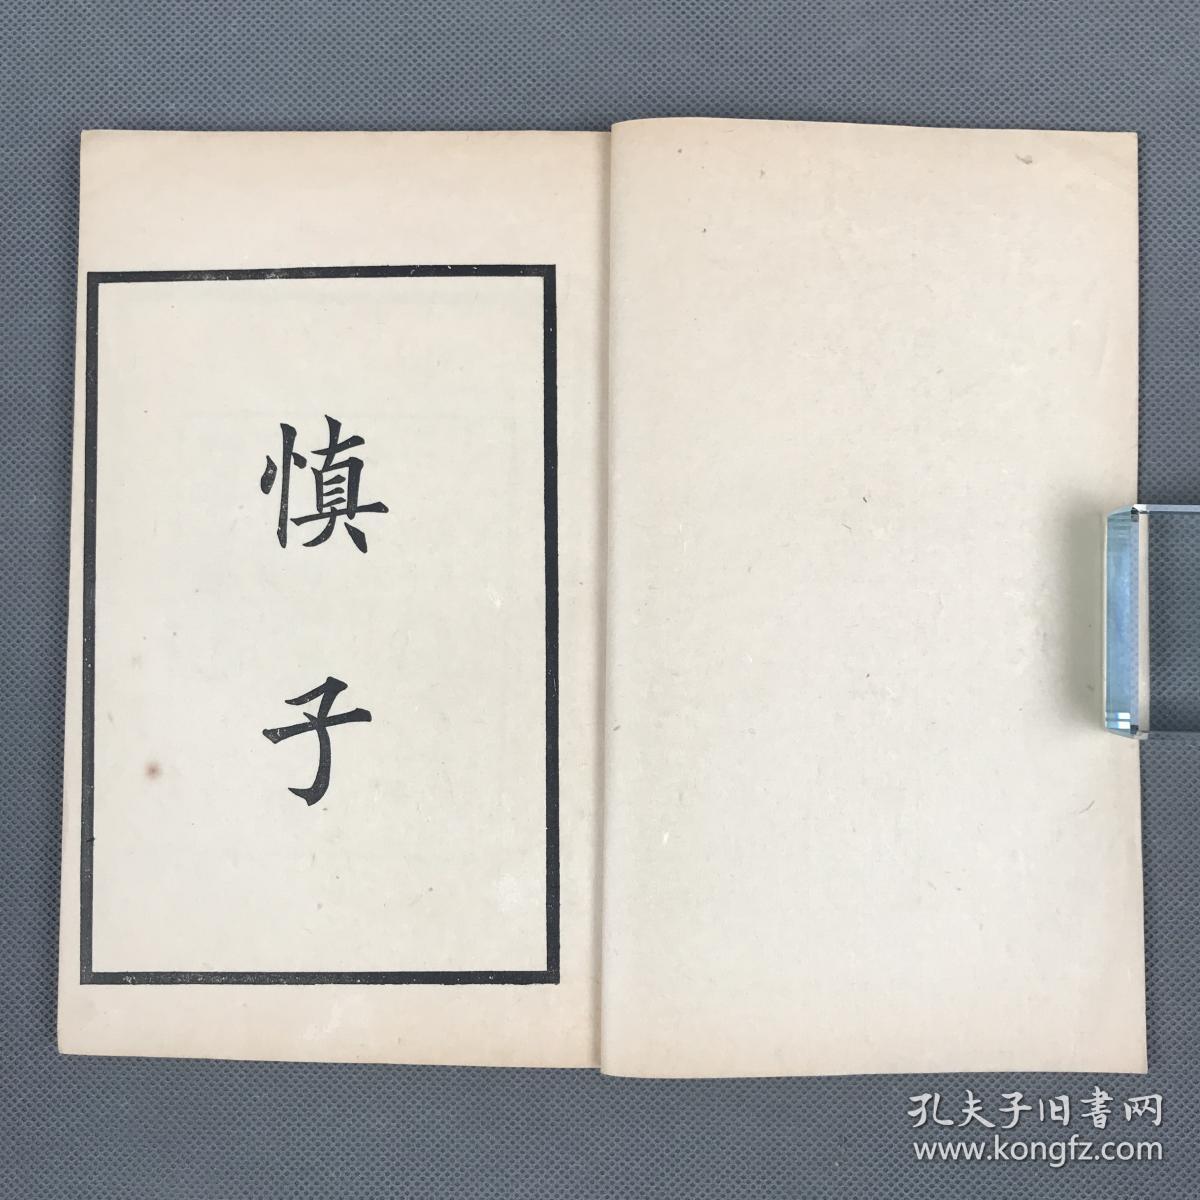 慎子
孔夫子旧書网
www.kongfz.com